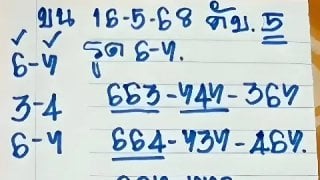 บน 16-5-68 ดับ. 5
✓ ✓
6-7 รูด 6-7.
3-4 663-747-367
6-7 664-737-467.